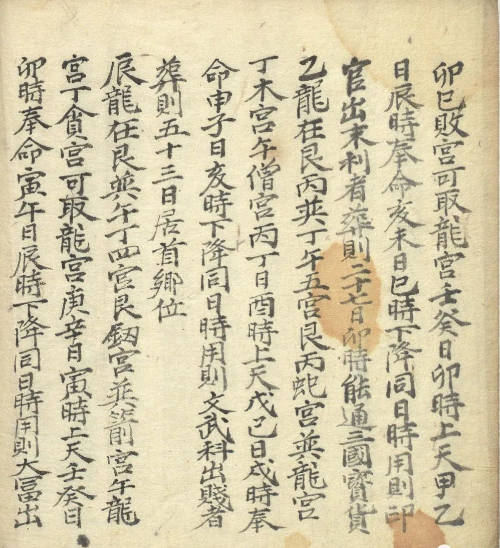 卯巳敗宮可取龍宮壬癸日卯時上天甲乙
日辰時奉命亥未日巳時下降同日時用則印
官出末利者葬則二十七日卯時能通三國寳貨
乙龍在艮丙英丁午五宮艮丙蛇宮英龍宮
丁木宮午僧宮丙丁日酉時上天戊己日戌時奉
命申子日亥時下降同日時用則文武科出賤者
葬則五十三日居首鄉位
辰龍在艮英午丁四宮艮釼宮英箭宮午龍
宮丁貪宮可取龍宮庚辛日寅時上天壬癸日
卯時奉命寅午日辰時下降同日時用則大冨出